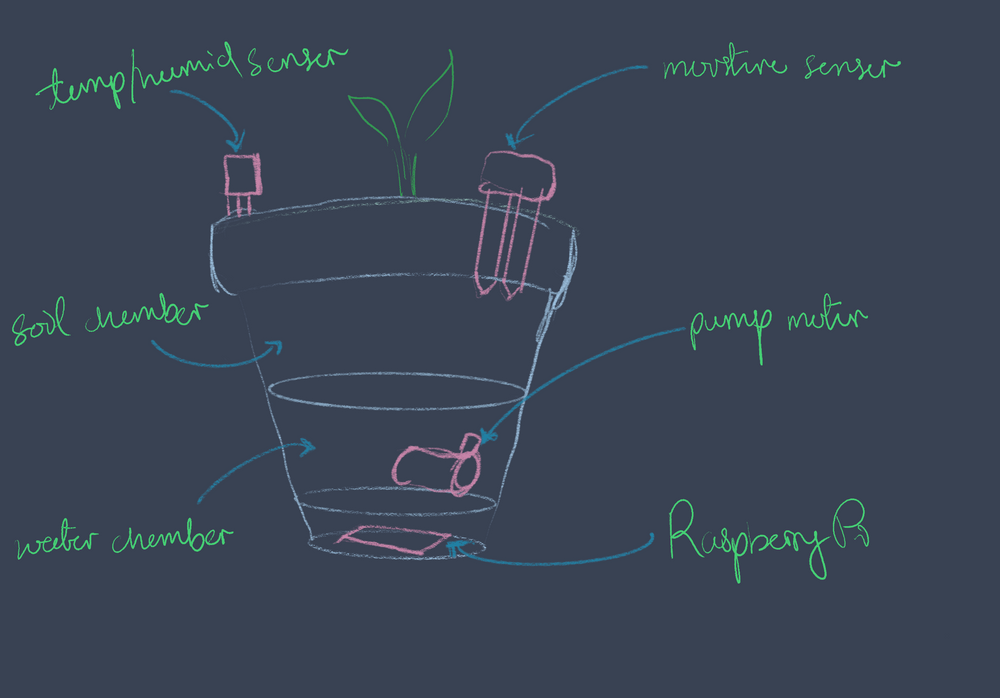 temp/humid senser
moisture senser
soil chember
pump motor
water chember
Raspberry Pi